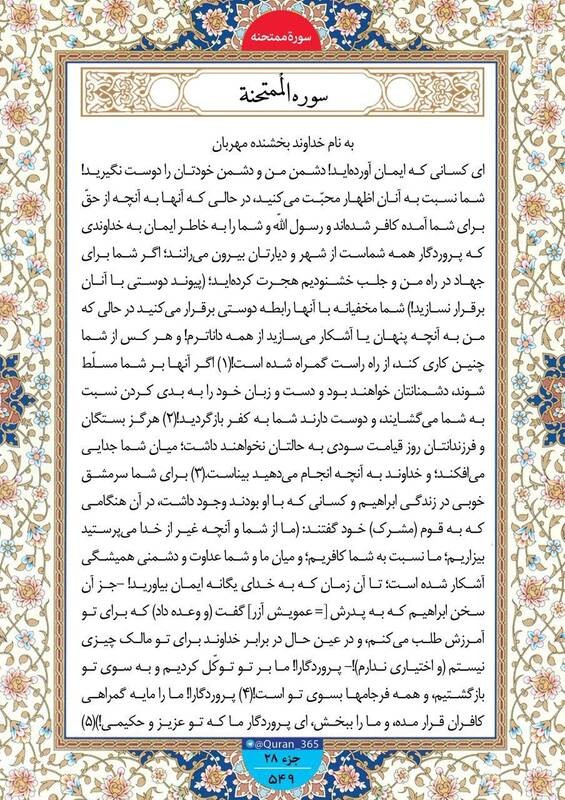 سورة ممتحنه
سوره الْممتحنة
به نام خداوند بخشنده مهربان
ای کسانی که ایمان آورده‌اید! دشمن من و دشمن خودتان را دوست نگیرید!
شما نسبت به آنان اظهار محبّت می‌کنید، در حالی که آنها به آنچه از حقّ
برای شما آمده کافر شده‌اند و رسول اللّه و شما را به خاطر ایمان به خداوندی
که پروردگار همه شماست از شهر و دیارتان بیرون می‌رانند؛ اگر شما برای
جهاد در راه من و جلب خشنودیم هجرت کرده‌اید؛ (پیوند دوستی با آنان
برقرار نسازید!) شما مخفیانه با آنها رابطه دوستی برقرار می‌کنید در حالی که
من به آنچه پنهان یا آشکار می‌سازید از همه داناترم! و هر کس از شما
چنین کاری کند، از راه راست گمراه شده است!(۱) اگر آنها بر شما مسلّط
شوند، دشمنانتان خواهند بود و دست و زبان خود را به بدی کردن نسبت
به شما می‌گشایند، و دوست دارند شما به کفر بازگردید!(۲) هرگز بستگان
و فرزندانتان روز قیامت سودی به حالتان نخواهند داشت؛ میان شما جدایی
می‌افکند؛ و خداوند به آنچه انجام می‌دهید بیناست.(۳) برای شما سرمشق
خوبی در زندگی ابراهیم و کسانی که با او بودند وجود داشت، در آن هنگامی
که به قوم (مشرک) خود گفتند: (ما از شما و آنچه غیر از خدا می‌پرستید
بیزاریم؛ ما نسبت به شما کافریم؛ و میان ما و شما عداوت و دشمنی همیشگی
آشکار شده است؛ تا آن زمان که به خدای یگانه ایمان بیاورید! -جز آن
سخن ابراهیم که به پدرش [= عمویش آزر] گفت (و وعده داد) که برای تو
آمرزش طلب می‌کنم، و در عین حال در برابر خداوند برای تو مالک چیزی
نیستم (و اختیاری ندارم)!- پروردگارا! ما بر تو توکّل کردیم و به سوی تو
بازگشتیم، و همه فرجامها بسوی تو است!(۴) پروردگارا! ما را مایه گمراهی
کافران قرار مده، و ما را ببخش، ای پروردگار ما که تو عزیز و حکیمی!)(۵)
@Quran_365
جزء ۲۸
۵۴۹